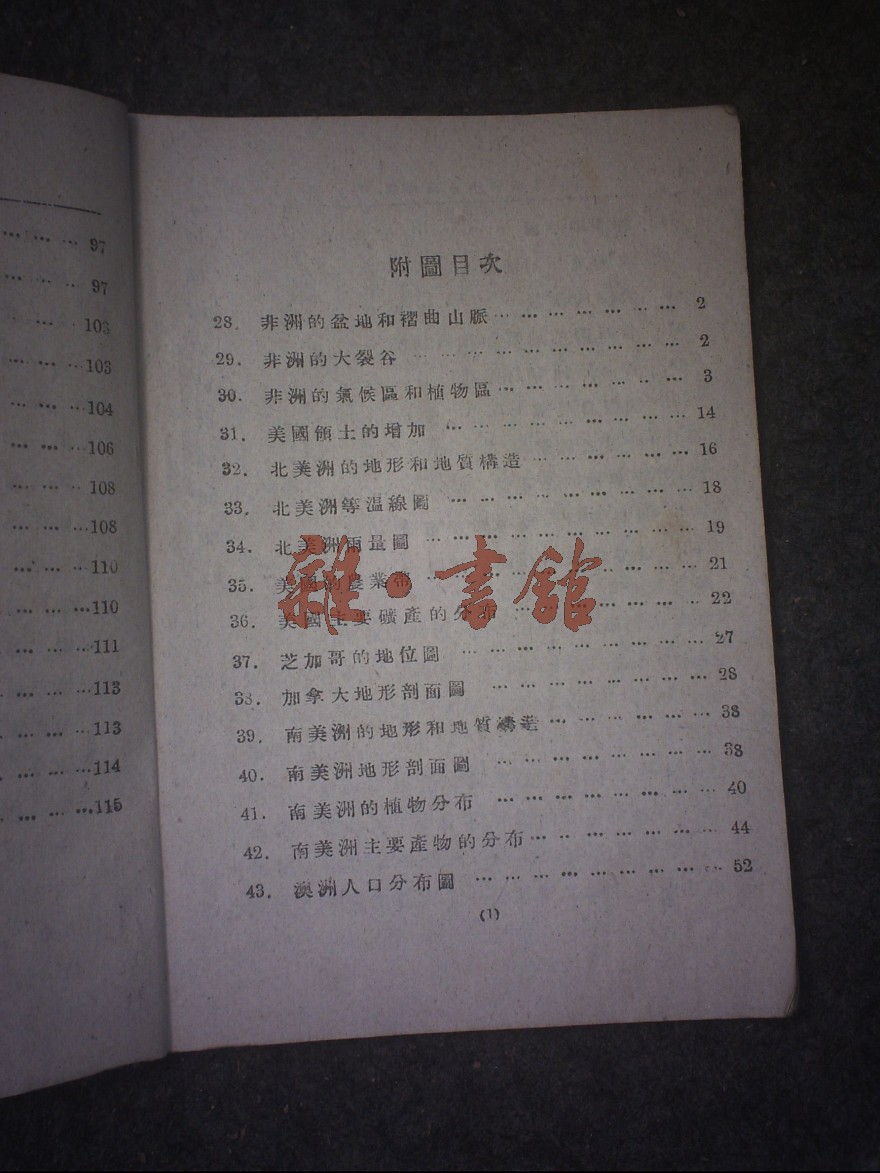 97
97
103
103
104
106
108
108
110
110
111
113
113
114
115
附圖目次
28. 非洲的盆地和褶曲山脈 2
29. 非洲的大裂谷 2
30. 非洲的氣候區和植物區 3
31. 美國領土的增加 14
32. 北美洲的地形和地質構造 16
33. 北美洲等温線圖 18
34. 北美洲雨量圖 19
35. 美國的農業帶 21
36. 美國主要礦產的分布 22
37. 芝加哥的地位圖 27
38. 加拿大地形剖面圖 28
39. 南美洲的地形和地質構造 38
40. 南美洲地形剖面圖 38
41. 南美洲的植物分布 40
42. 南美洲主要產物的分布 44
43. 澳洲人口分布圖 52
(1)
雜·書館